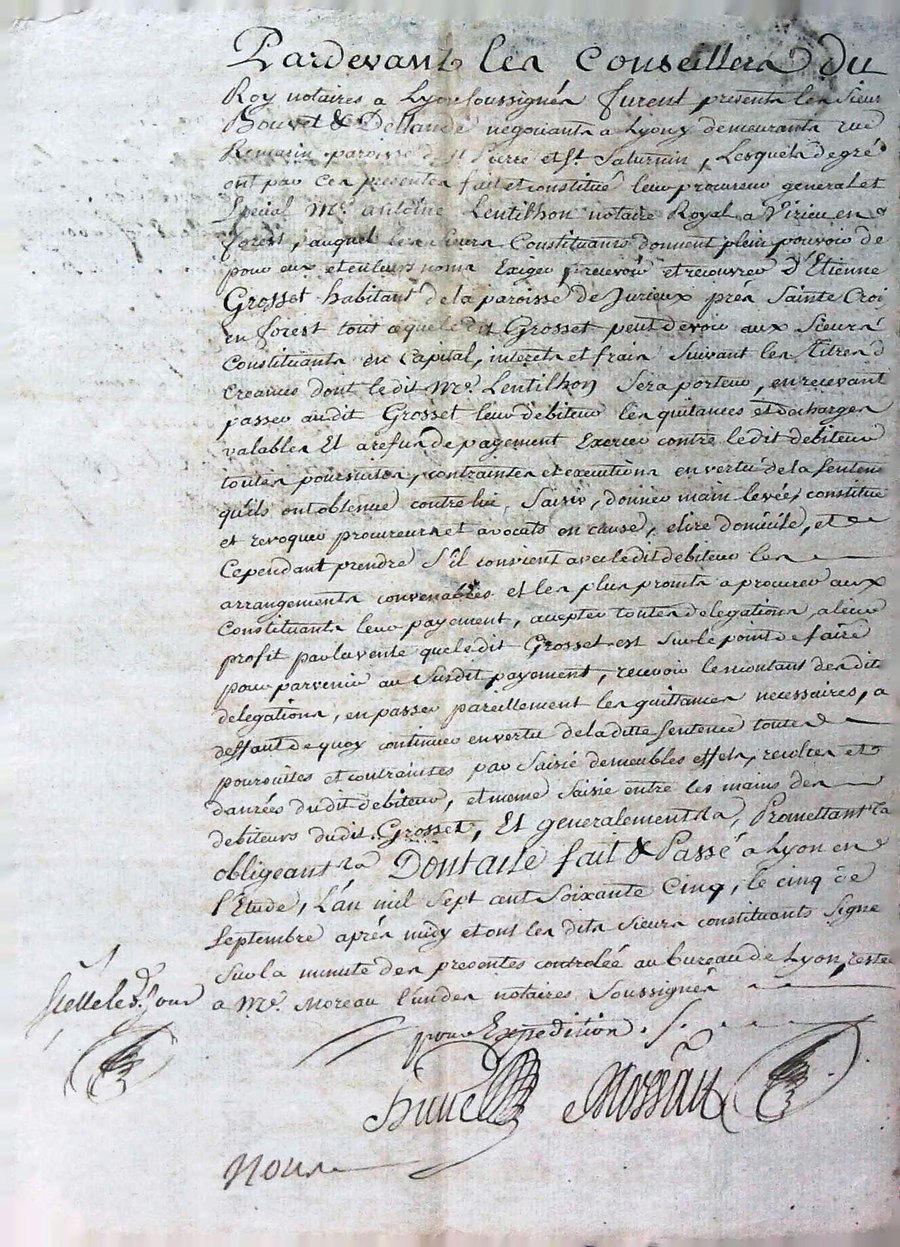 Pardevant les Conseillers du
Roy notaires a Lyon soussignés furent presents les Sieurs
Bouvet & Dellande negociants a Lyon y demeurants rue
Romarin paroisse de St Pierre et St Saturnin, Lesquels de gré
ont par ces presentes fait et constitué leur procureur general et
Special Me. antoine Lentilhon notaire Royal a Virieu en
forest, auquel les Sieurs Constituants donnent plein pouvoir de
pour eux et en leurs noms Exiger, recevoir et recouvrer d'Etienne
Grosset habitant de la paroisse de Jurieux prés Sainte Croi
en forest tout ce que le dit Grosset peut devoir aux Sieurs
Constituants en Capital, interets et frais Suivant les titres de
Creances dont le dit Me. Lentilhon Sera porteur, en recevant
passer audit Grosset leur debiteur les quitances et décharges
valables Et a refus de payement Exercer contre le dit debiteur
toutes poursuites, contraintes et executions en vertu de la Sentence
qu'ils ont obtenue contre lui, Saisir, donner main levée, constituer
et revoquer procureurs et avocats en cause, elire domicile, et
Cependant prendre S'il convient avec le dit debiteur les
arrangements convenables et les plus promts a procurer aux
Constituants leur payement, accepter toutes delegations a leur
profit par la vente que le dit Grosset est Sur le point de faire
pour parvenir au Susdit payement, recevoir le montant des dites
delegations, en passer pareillement les quittances necessaires, a
deffaut de quoy continuer en vertu de la ditte Sentence toutes
poursuites et contraintes par Saisie de meubles effets, recoltes et
danrées du dit debiteur, et meme Saisie entre les mains des
debiteurs du dit Grosset, Et generalement &a, Promettant &a
obligeant &a Dont acte fait & Passé a Lyon en
l'Etude, L'an mil Sept cent Soixante Cinq, le cinq de
Septembre aprés midy et ont les dits Sieurs constituants Signé
Sur la minute des presentes controlée au bureau de Lyon, restée
a Me. Moreau l'un des notaires Soussignés
Scellé led. Jour
pour Expedition.
Moreau
Nous